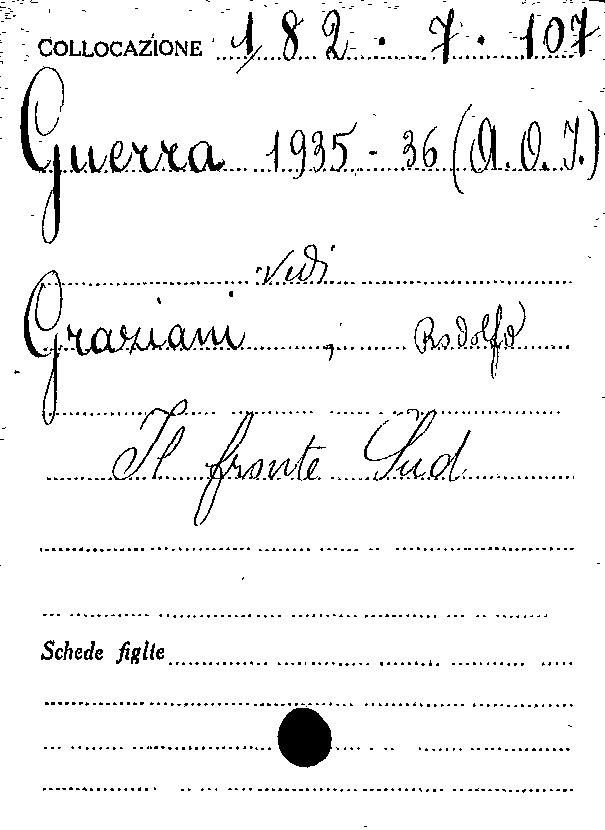 COLLOCAZIONE 182.7.107
Guerra 1935-36 (A.O.I.)
Vedi
Graziani, Rodolfo
Il fronte Sud
Schede figlie